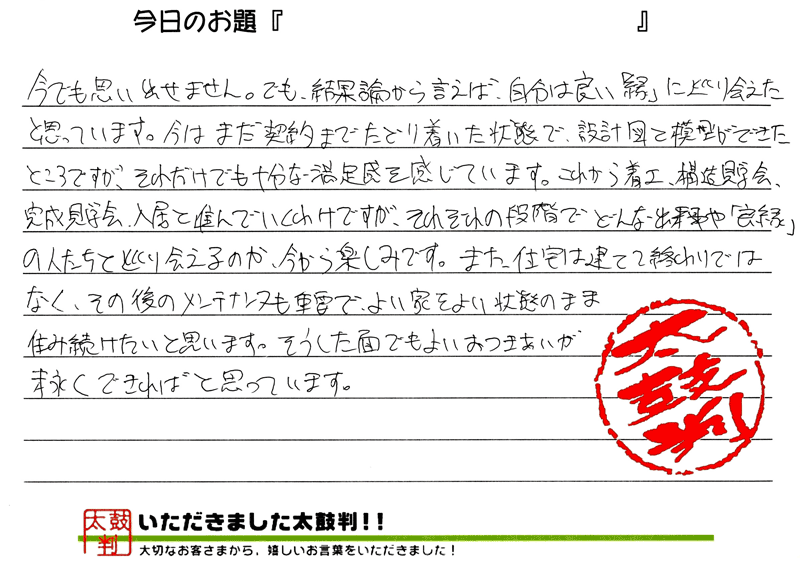 今日のお題『　　　』
今でも思い出せません。でも、結果論から言えば、自分は良い「縁」に巡り会えた
と思っています。今はまだ契約までたどり着いた状態で、設計図と模型ができた
ところですが、それだけでも十分な満足感を感じています。これから着工、構造見学会、
完成見学会、入居と進んでいくわけですが、それぞれの段階でどんな出来事や「良縁」
の人たちと巡り会えるのか、今から楽しみです。また、住宅は建てて終わりでは
なく、その後のメンテナンスも重要で、よい家をよい状態のまま
住み続けたいと思います。そうした面でもよいおつきあいが
末永くできればと思っています。
太鼓判
太鼓判
いただきました太鼓判!!
大切なお客さまから、嬉しいお言葉をいただきました!